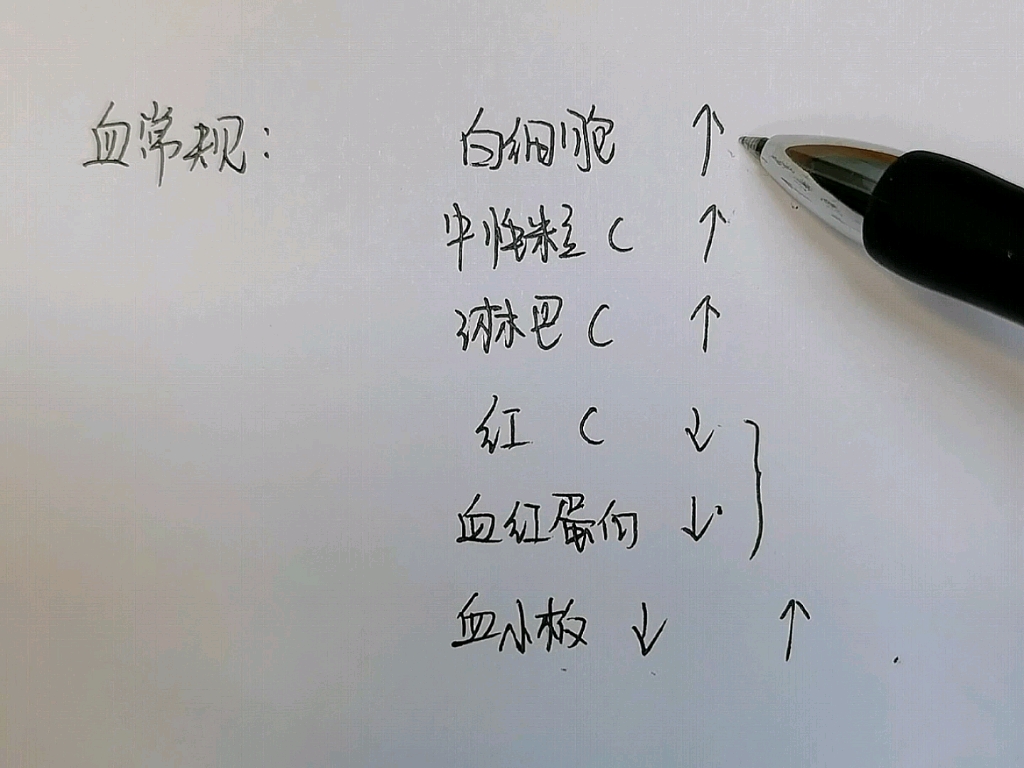 血常规： 白细胞 ↑
中性粒 C ↑
淋巴 C ↑
红 C ↓
血红蛋白 ↓
血小板 ↓ ↑